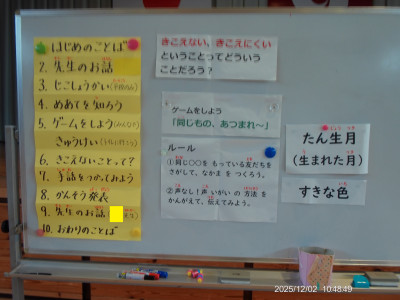 はじめのことば
2. 先生のお話
3. じこしょうかい
4. めあてを知ろう
5. ゲームをしよう(みんなで)
きゅうけい
6. きこえないことって?
7. 手話をつかってみよう
8. かんそう発表
9. 先生のお話
10. おわりのことば
きこえない、きこえにくい
ということってどういう
ことだろう?
ゲームをしよう
「同じもの、あつまれ~」
ルール
①同じ○○を もっている 友だちを
さがして、なかま を つくろう。
②声なし!声 いがい の 方法 を
かんがえて、伝えてみよう。
たん生月
(生まれた月)
すきな色
2025/12/02 10:48:49